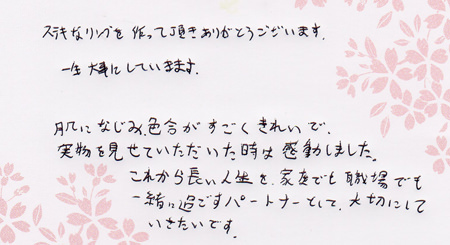 ステキなリングを作って頂きありがとうございます。
一生大事にしていきます。
肌になじみ、色合がすごくきれいで、
実物を見せていただいた時は感動しました。
これから長い人生を、家庭でも職場でも
一緒に過ごすパートナーとして、大切にして
いきたいです。